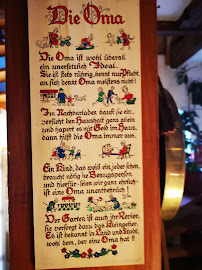 Die Oma
Die Oma ist wohl überall
ein unersetzlich Ideal.
Sie ist stets rührig, kennt nur Pflicht,
an sich denkt Oma meistens nicht!
Im Nachbarladen kauft sie ein,
versieht den Haushalt ganz allein
und hapert es mit Geld im Haus,
dann hilft die Oma immer aus.
Ein Kind, das weiß ein jeder schon,
braucht nötig 'ne Bezugsperson
und hierfür - seien wir ganz ehrlich -
ist eine Oma unentbehrlich!
Der Garten ist auch ihr Revier,
sie versorgt dazu das Kleingetier.
Es ist bekannt in Land und Stadt,
wohl dem, der eine Oma hat!!